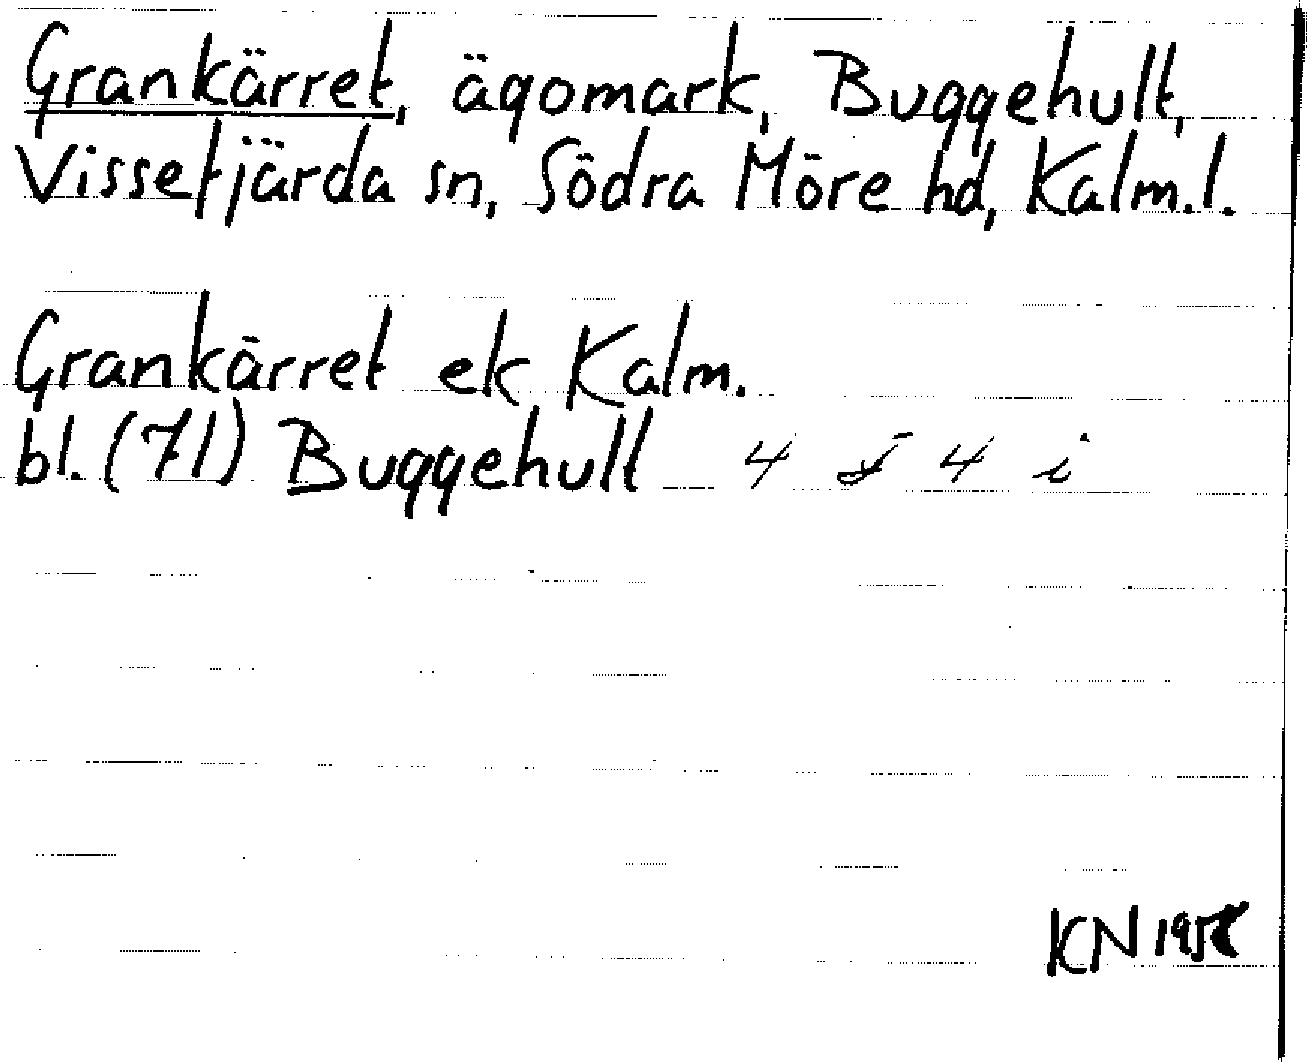 Grankärret, ägomark, Buggehult,
Vissefjärda sn, Södra Möre hd, Kalm.l.
Grankärret ek Kalm.
bl. (71) Buggehult 4 4 i
KN